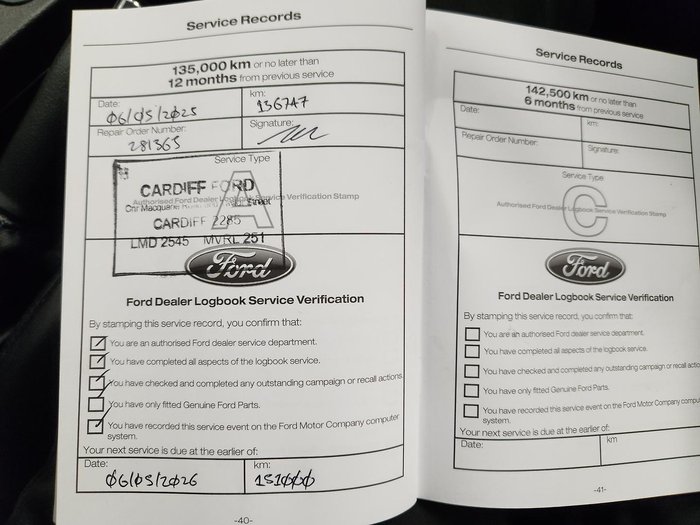 Service Records
135,000 km or no later than
12 months from previous service
Date: 06/05/2025
km: 136747
Repair Order Number: 281365
Signature:
Service Type
A
CARDIFF FORD
Authorised Ford Dealer Logbook Service Verification Stamp
Cnr Macquarie Street
CARDIFF 2285
LMD 2545 MVRL 251
Ford
Ford Dealer Logbook Service Verification
By stamping this service record, you confirm that:
You are an authorised Ford dealer service department.
You have completed all aspects of the logbook service.
You have checked and completed any outstanding campaign or recall actions.
You have only fitted Genuine Ford Parts.
You have recorded this service event on the Ford Motor Company computer
system.
Your next service is due at the earlier of:
Date: 06/05/2026
km: 151000
-40-
Service Records
142,500 km or no later than
6 months from previous service
Date:
km:
Repair Order Number:
Signature:
Service Type
C
Authorised Ford Dealer Logbook Service Verification Stamp
Ford
Ford Dealer Logbook Service Verification
By stamping this service record, you confirm that:
You are an authorised Ford dealer service department.
You have completed all aspects of the logbook service.
You have checked and completed any outstanding campaign or recall actio
You have only fitted Genuine Ford Parts.
You have recorded this service event on the Ford Motor Company compu
system.
Your next service is due at the earlier of:
Date:
km
-41-